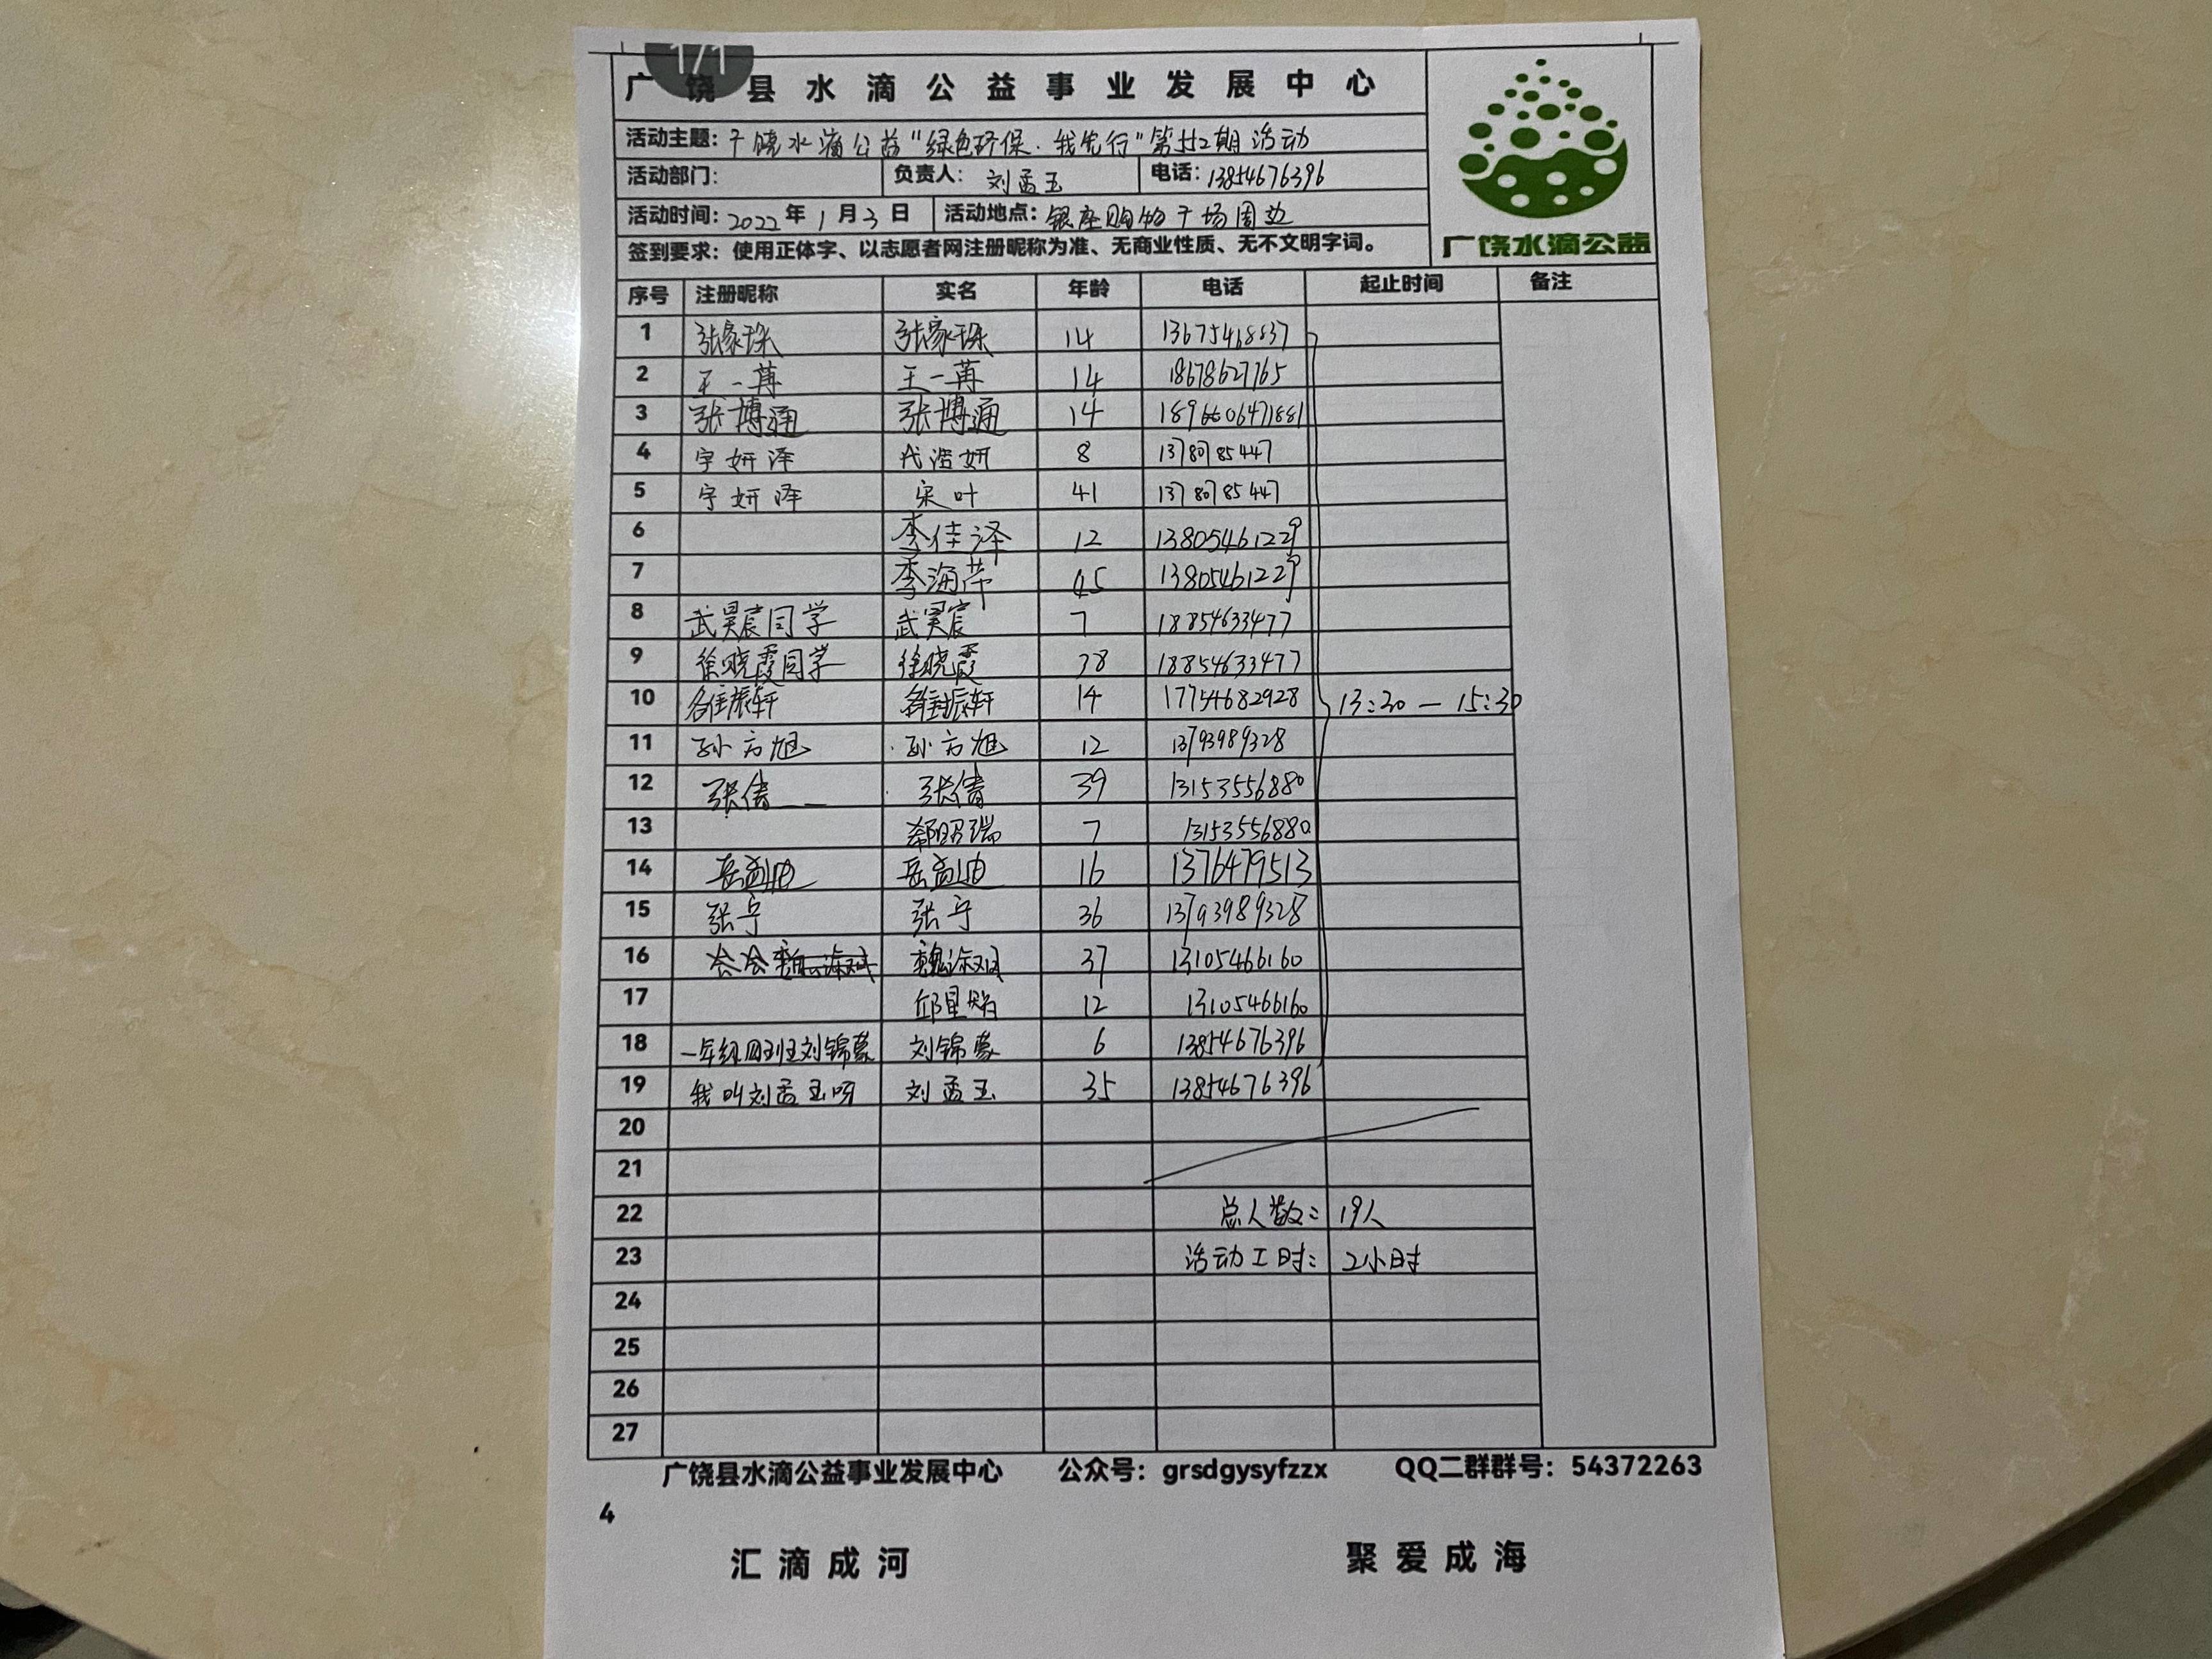 1/1
广饶县水滴公益事业发展中心
活动主题：广饶水滴公益“绿色环保·我先行”第卅2期活动
活动部门： 负责人：刘孟玉 电话：13854676396
活动时间：2022年1月3日 活动地点：银座购物广场周边
签到要求：使用正体字、以志愿者网注册昵称为准、无商业性质、无不文明字词。
广饶水滴公益
序号 注册昵称 实名 年龄 电话 起止时间 备注
1 张家琛 张家琛 14 13675468837
2 王一苒 王一苒 14 18678627765
3 张博通 张博通 14 1896606471881
4 宇妍泽 代浩妍 8 13780785447
5 宇妍泽 宋叶 41 13780785447
6 李佳泽 12 13805461229
7 李海荣 45 13805461229
8 武昊宸同学 武昊宸 7 18854633477
9 徐晓霞同学 徐晓霞 38 18854633477
10 振轩 振轩 14 17754682928 13:30 — 15:30
11 孙方旭 孙方旭 12 13793989328
12 张倩 张倩 39 13153556880
13 郗昭瑞 7 13153556880
14 岳孟迪 岳孟迪 16 1376479513
15 张宁 张宁 36 13793989328
16 会会 魏淑斌 37 13105466160
17 邱星皓 12 13105466160
18 一年级四班刘锦蒙 刘锦蒙 6 13854676396
19 我叫刘孟玉呀 刘孟玉 35 13854676396
20
21
22 总人数： 19人
23 活动工时： 2小时
24
25
26
27
广饶县水滴公益事业发展中心 公众号：grsdgysyfzzx QQ二群群号：54372263
4
汇滴成河 聚爱成海